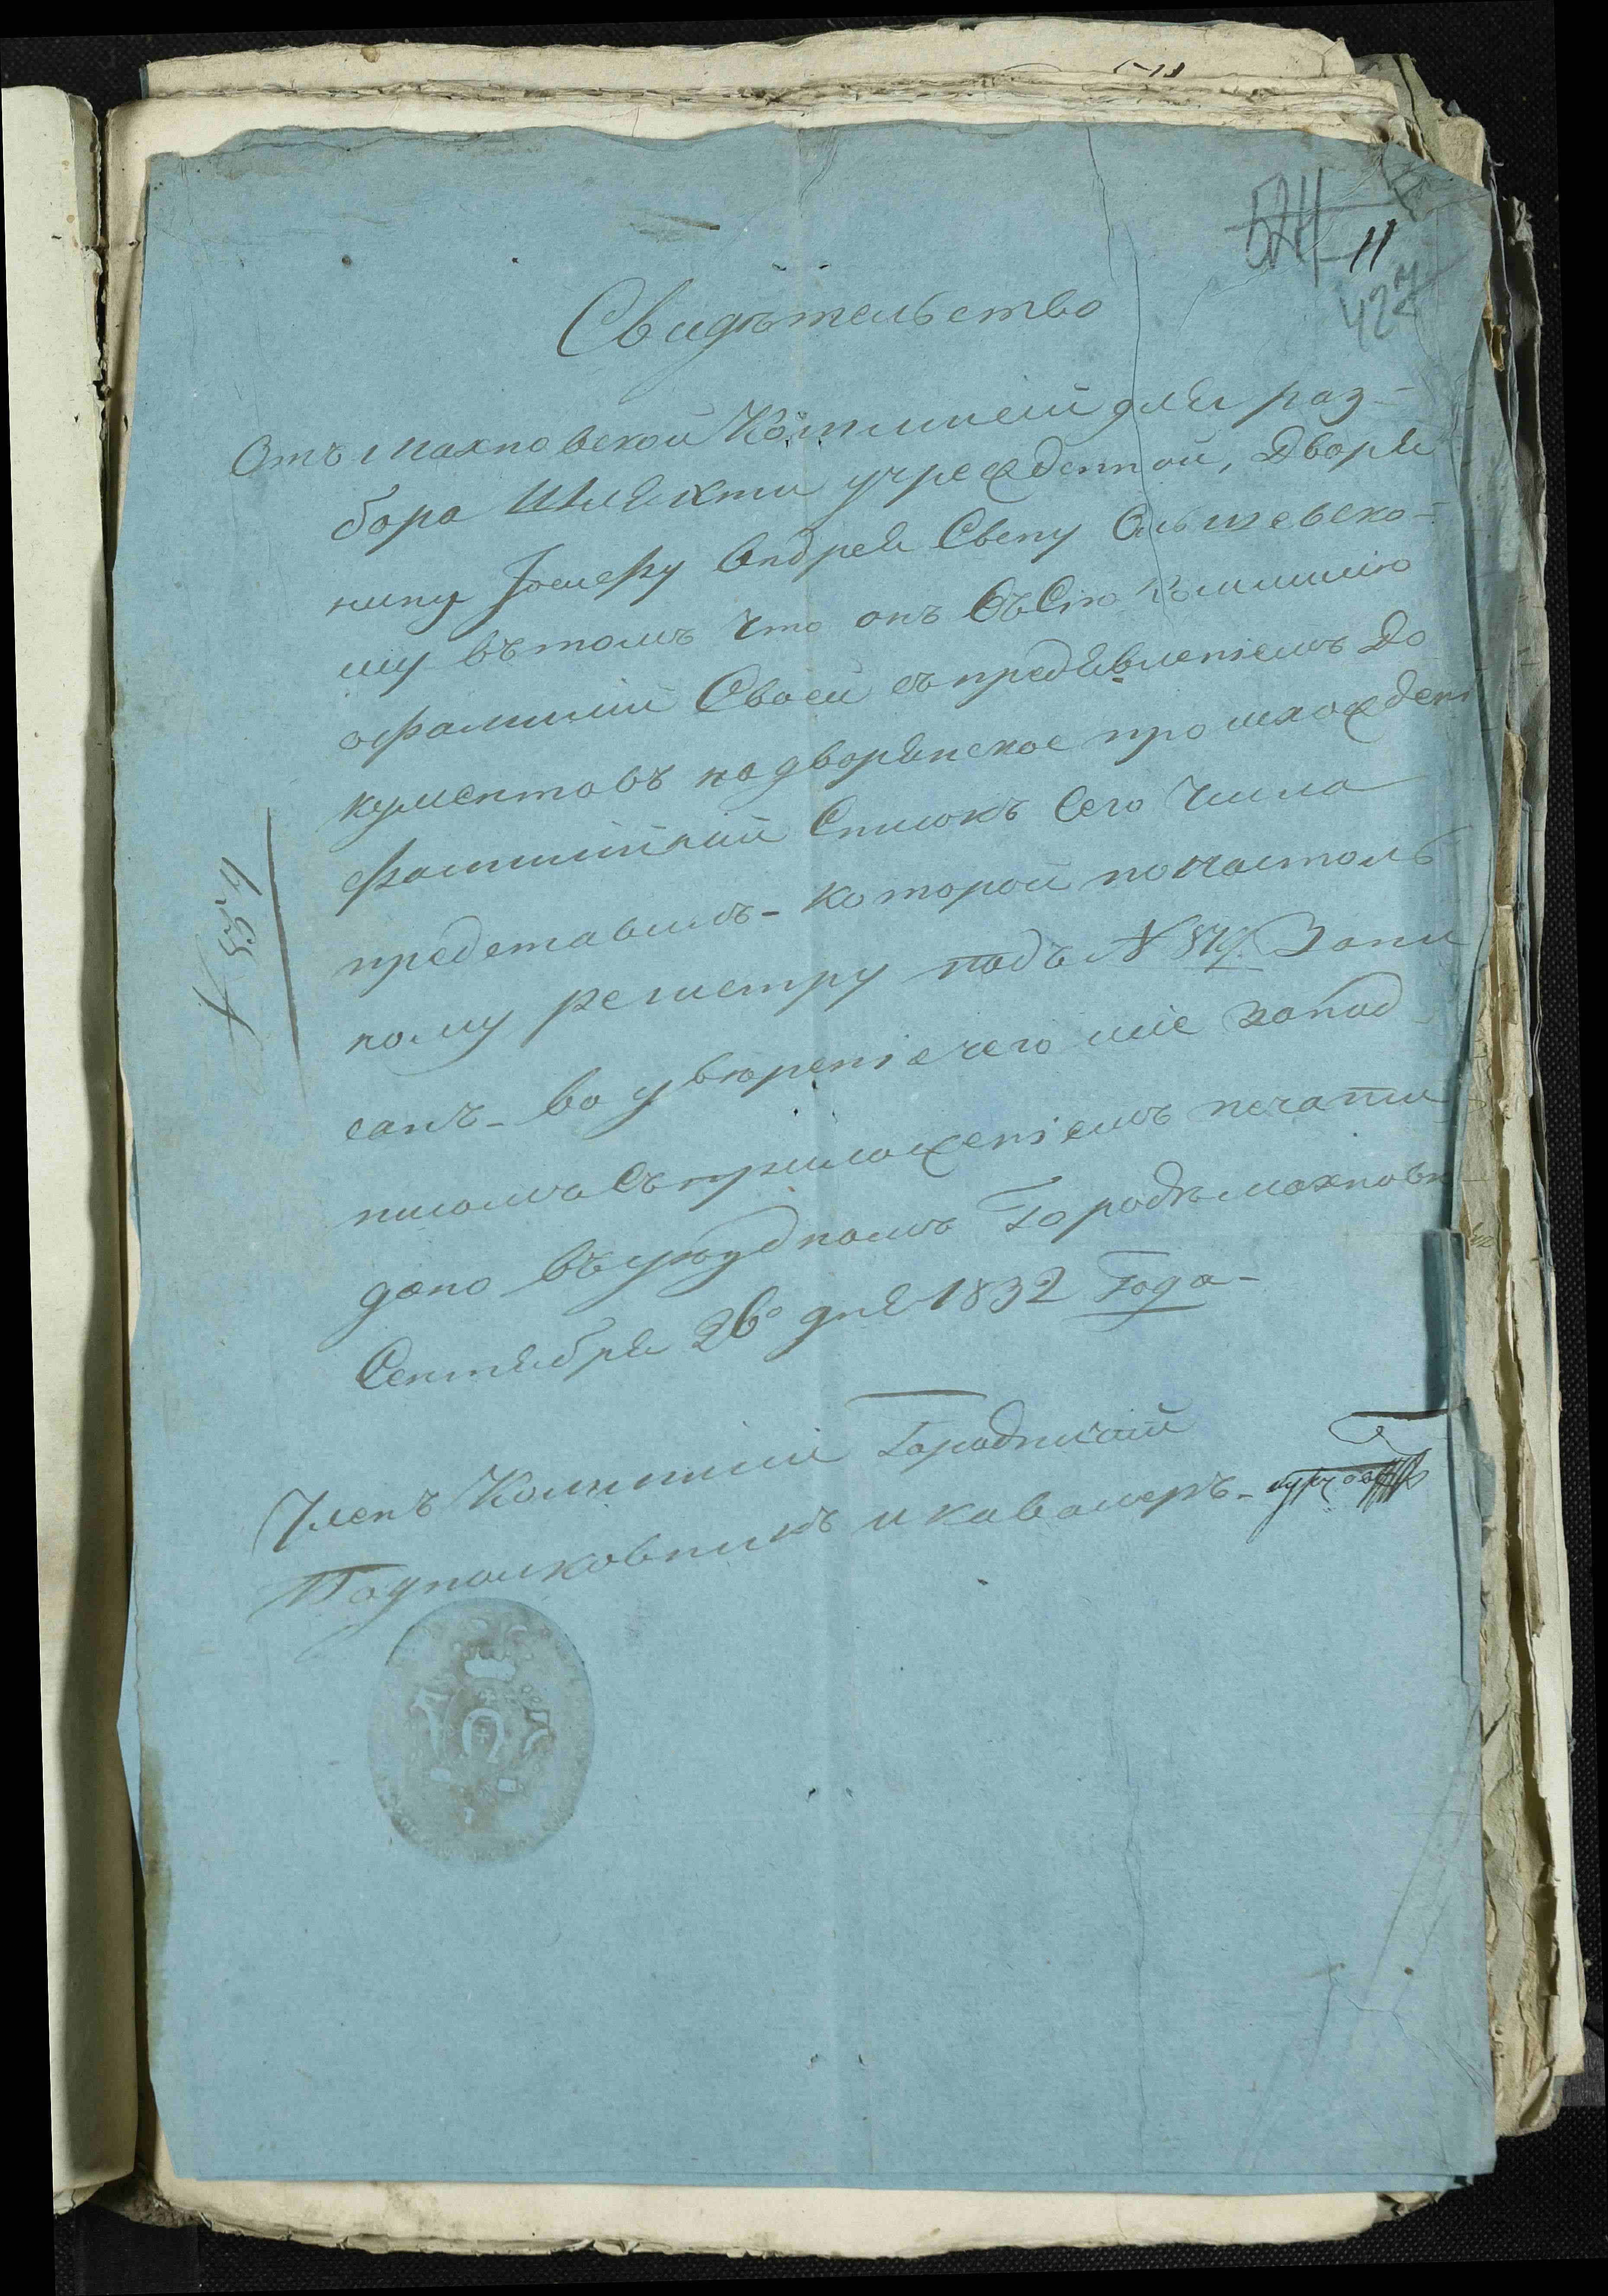 11
427
Свидѣтельство
Отъ Махновской Коммисіи для раз-
бора Шляхти учрежденной, Дворя
нину Іосифу Андрея Сыну Ольшевско-
му въ томъ что онъ Въ Сію Коммисію
офамиліи Своей съ предявленіемъ До
кументовъ на дворянское происхожденіе
фамилійній Списокъ Сего Числа
представилъ - которой по настоль
ному регистру подъ №
Запи
санъ - во увѣреніе чего сіе За под
писомъ Съ приложеніемъ печати
дано въ уѣздномъ Городѣ Махновк
Сентября 26го дня 1832 Года -
Членъ Коммисіи Городничій
Подполковникъ и кавалеръ -